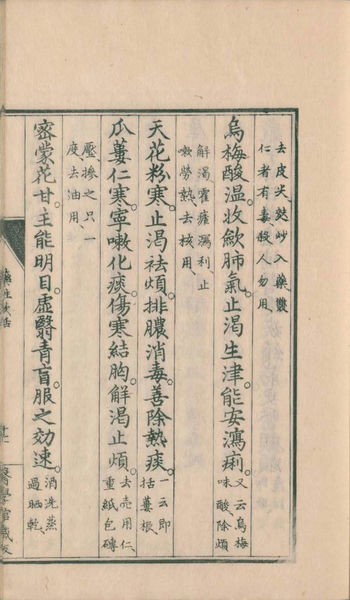 去皮尖麸炒入藥雙
仁者有毒殺人勿用
烏梅酸温收歛肺氣止渴生津能安瀉痢又云烏梅
味酸除煩
解渴霍瘧瀉利止
嗽勞熱去核用
天花粉寒止渴祛煩排膿消毒善除熱痰一云即
括蔞根
瓜蔞仁寒寧嗽化痰傷寒結胸解渴止煩去売用仁
重紙包磚
壓摻之只一
度去油用
密蒙花甘主能明目虛翳青盲服之効速酒洗蒸
過晒乾